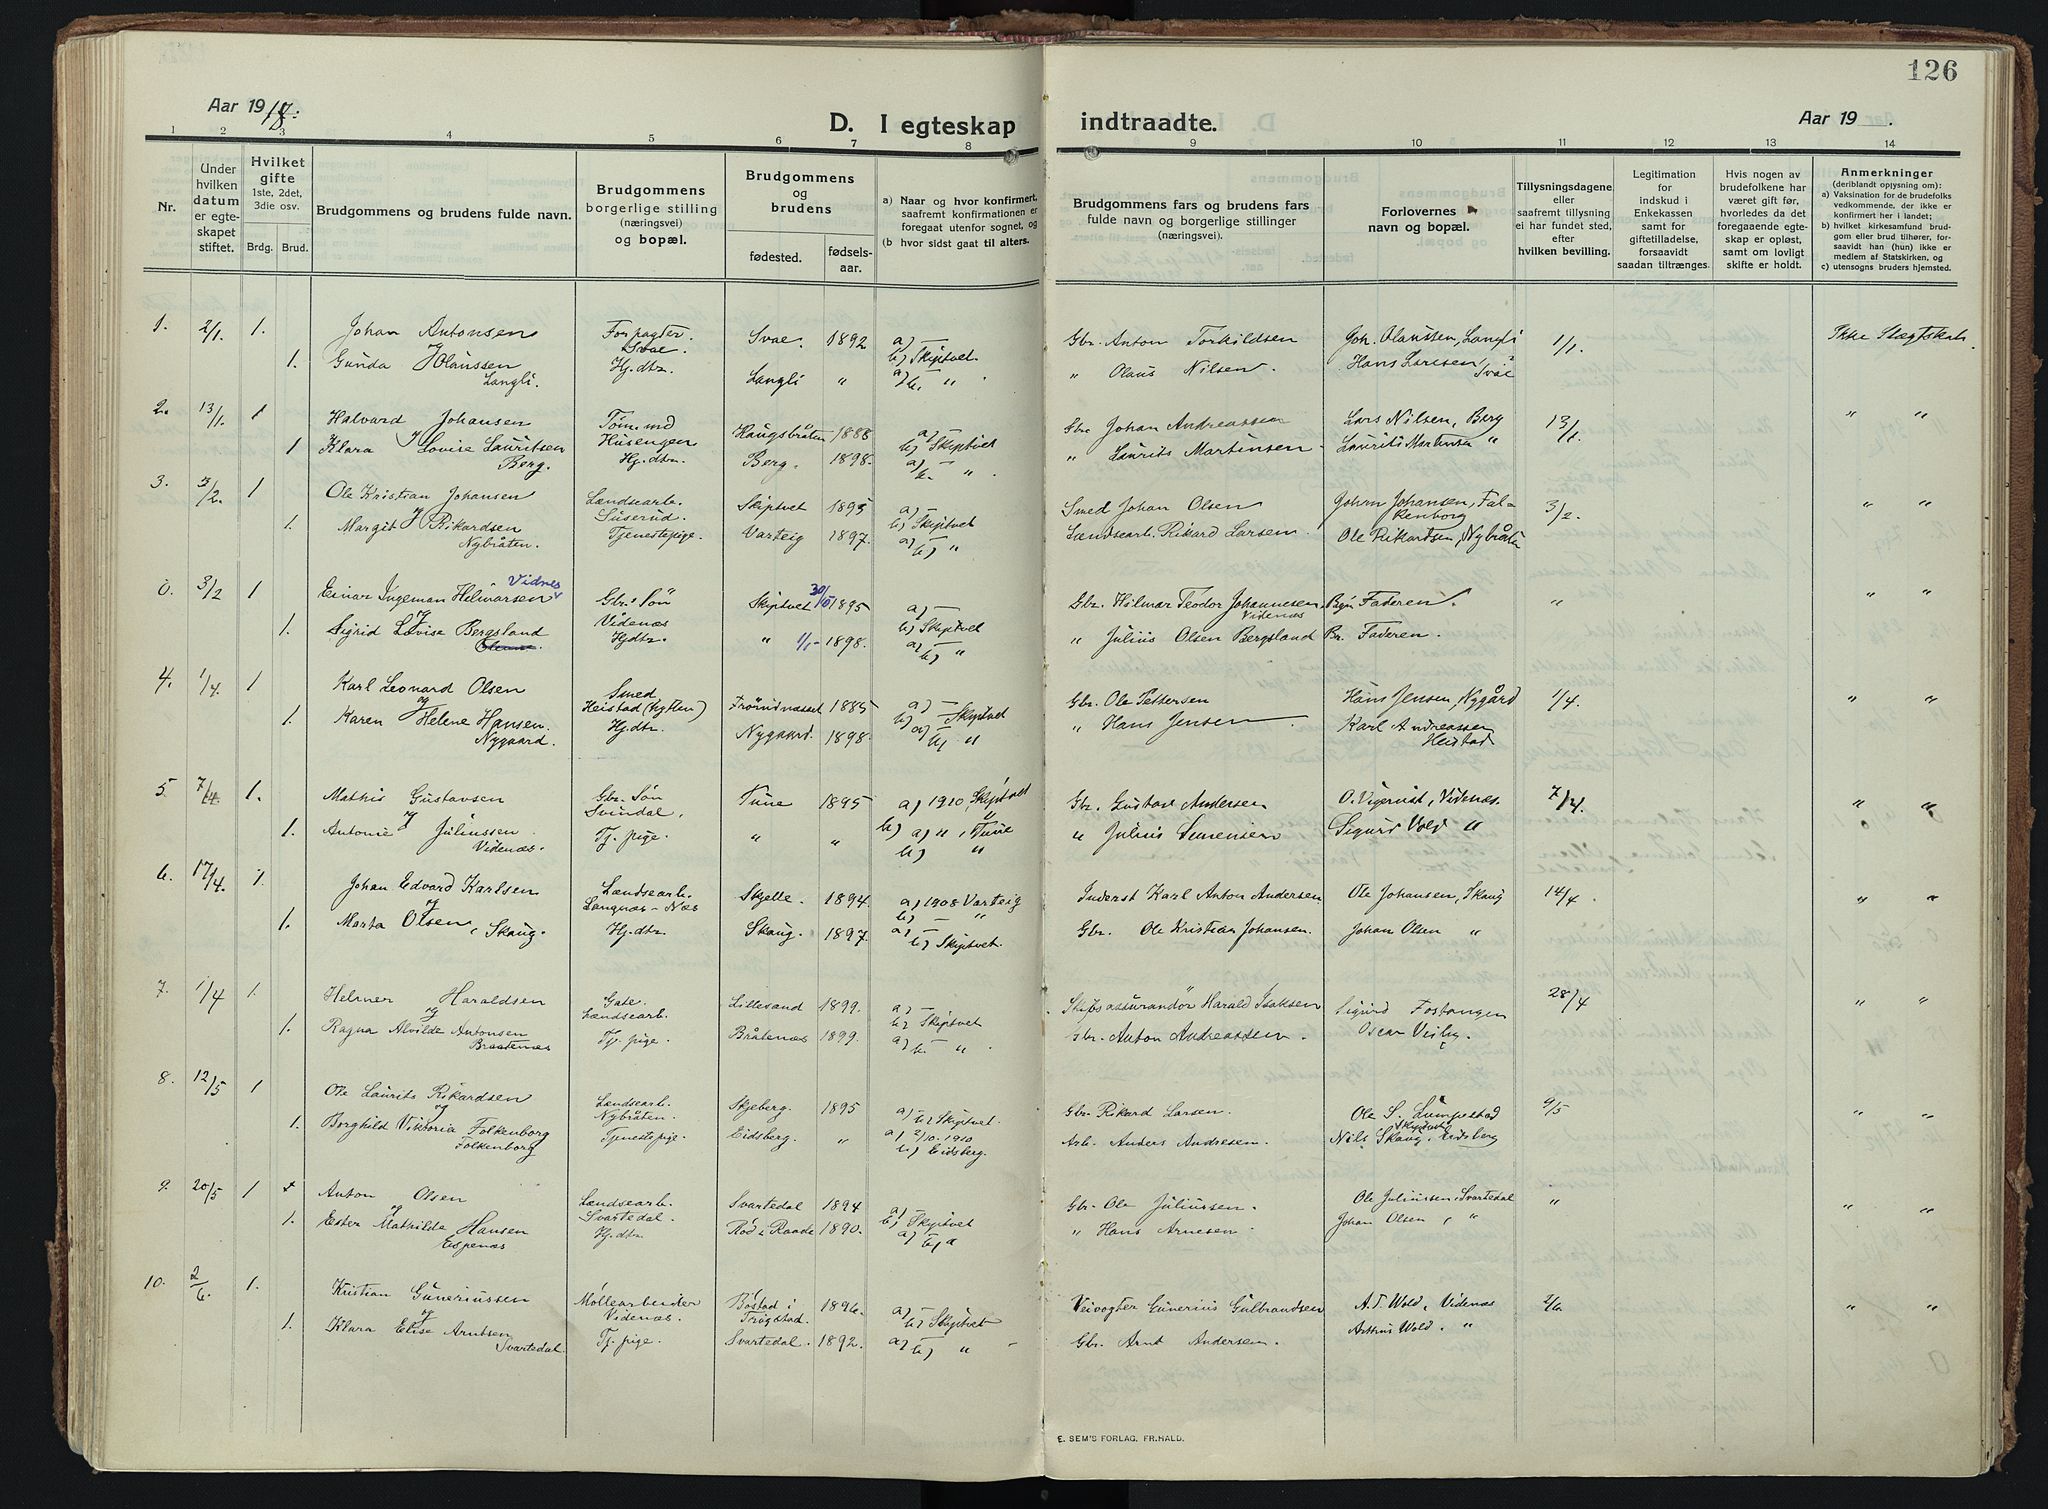 126
Aar 1918.
D. I egteskap indtraadte.
Aar 19 .
1 2 3 4 5 6 7 8 9 10 11 12 13 14
Nr.
Under hvilken datum er egteskapet stiftet.
Hvilket gifte 1ste, 2det, 3die osv.
Brdg. Brud.
Brudgommens og brudens fulde navn.
Brudgommens borgerlige stilling (næringsvei) og bopæl.
Brudgommens og brudens
fødested.
fødselsaar.
a) Naar og hvor konfirmert, saafremt konfirmationen er foregaat utenfor sognet, og
(b hvor sidst gaat til alters.
Brudgommens fars og brudens fars fulde navn og borgerlige stillinger (næringsvei).
Forlovernes navn og bopæl.
Tillysningsdagene eller saafremt tillysning ei har fundet sted, efter hvilken bevilling.
Legitimation for indskud i Enkekassen samt for giftetilladelse, forsaavidt saadan tiltrænges.
Hvis nogen av brudefolkene har været gift før, hvorledes da det foregaaende egteskap er opløst, samt om lovligt skifte er holdt.
Anmerkninger (deriblandt opjysning om):
a) Vaksination for de brudefolks vedkommende, der ikke er konfirmert her i landet;
b) hvilket kirkesamfund brudgom eller brud tilhører, forsaavidt han (hun) ikke er medlem av Statskirken, og
c) utensogns bruders hjemsted.
1. 2/1 1. Johan Antonsen Forpagter Svae. Svae 1892 a) — b) Skiptvet Gbr. Anton Torkildsen Joh. Olaussen, Langli 1/1. Ikke Slægtskab.
og
1. Gunda Olaussen Langli. Hj. dtr. Langli " a) — b. " " Olaus Nilsen. Hans Larsen, Svae
2. 13/1 1 Halvard Johansen Tøm.md Husengen Haugsbråten 1888 a) — b) Skiptvet Gbr. Johan Andreassen Lars Nilsen, Berg 13/1. " "
og
1 Klara Lovise Lauritsen Berg. Hj. dtr. Berg. 1898. a) — b. " " Laurits Martinsen Laurits Martinsen "
3. 3/2 1 Ole Kristian Johansen Landsearb. Suserud. Skiptvet 1895 a) — b) Skiptvet Smed Johan Olsen Johan Johansen, Falkenborg 3/2. " "
og
1. Margit Rikardsen Nybråten. Tjenestepige. Varteig 1897. a) — b) " Landsearb. Rikard Larsen. Ole Rikardsen, Nybråten
0. 3/2 1 Einar Ingeman Hilmarsen Vidnes Gbr. Søn Videnæs Skiptvet 1895 a) — b) Skiptvet Gbr. Hilmar Teodor Johannesen Videnæs Faderen. " " "
og
1. Sigrid Lovise Bergsland Hj.dtr. " 1/1 - 1898. a) — b) " " Julius Olsen Bergsland Br. Faderen.
4. 1/4. 1 Karl Leonard Olsen Smed Heistad (Hytten) 1885 a) — b) Skiptvet Gbr. Ole Pettersen Hans Jensen, Nygård 1/4 " "
og
1. Karen Helene Hansen. Nygaard. Hj. dtr. Nygaard. 1898. a) — b) " " Hans Jensen Karl Andreassen Heistad
5. 7/4 1. Mathis Gustavsen Gbr. Søn Svindal, Tune 1895 a) 1910, Skiptvet b) " Gbr. Gustav Andersen O. Vigerust, Videnæs. 7/4. " "
og
1. Antonie Juliussen Videnæs. Tj. pige. " " a) ", Tune b) " " Julius Simensen Sigurd Vold "
6. 17/4. 1. Johan Edvard Karlsen Landsearb. Langnæs - Næs Skjelle. 1894. a) 1908 Varteig b) — " Inderst Karl Anton Andersen Ole Johansen, Skaug 14/4. " "
og
1. Marta Olsen, Skaug. Hj. dtr. Skaug. 1897. a) — b) Skiptvet. Gbr. Ole Kristian Johansen. Johan Olsen "
7. 1/4 1. Helmer Haraldsen Gate. Landsearb. Lillesand 1899. a) — b) Skiptvet Skibsassurandør Harald Isaksen Sigurd Fostangen 28/4 " "
og
1. Ragna Alvilde Antonsen Braatenæs Tj. pige. Bråtenæs 1899. a) — b. " Gbr. Anton Andreassen. Oscar Visby.
8. 12/5 1 Ole Laurits Rikardsen Landsearb. Nybråten. Skjeberg. 1895 a) — b) Skiptvet. Gbr. Rikard Larsen. Ole S. Lumpestad Skiptvet 9/5 " "
og
1. Borghild Viktoria Falkenborg Falkenborg Tjenestepige. Eidsberg. " a) 2/10. 1910 b) Eidsberg. Arb. Anders Andresen. Nils Skaug, Eidsberg
9. 20/5 1 Anton Olsen Landsearb. Svartedal. Svartedal 1894 a) — b) Skiptvet Gbr. Ole Juliussen. Ole Juliussen, Svartedal " " "
og
1. Ester Mathilde Hansen Espenæs Hj. dtr. Rød i Raade 1890. a) — b) " " Hans Arnesen. Johan Olsen, "
10. 2/6. 1. Kristian Guneriussen Møllearbeider Videnæs. Bøstad i Trøgstad. 1896. a) — b) Skiptvet Veivogter Gunerius Gulbrandsen A. T. Wold, Videnæs 2/6. " "
og
1. Klara Elise Arntsen Svartedal. Tj. pige. Svartedal. 1892. a) — b) " Gbr. Arnt Andersen. Arthur Wold. "
E. SEM'S FORLAG, FR.HALD.